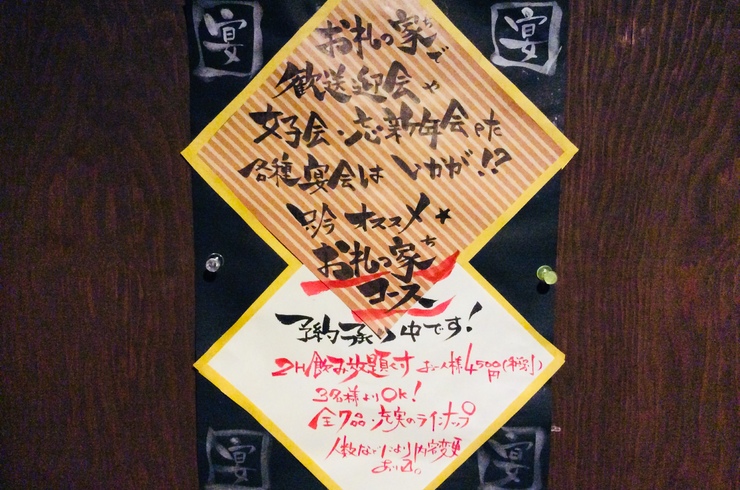 宴 宴
お札っ家ちで
歓送迎会や
女子会・忘新年会etc
各種宴会はいかが!?
只今オススメ★
お札っ家ち
コース
予約承り中です!
2H飲み放題&す お一人様4500円(税別)
3名様よりOK!
全7品・充実のラインナップ
人数などにより内容変更
あり〼。
宴 宴